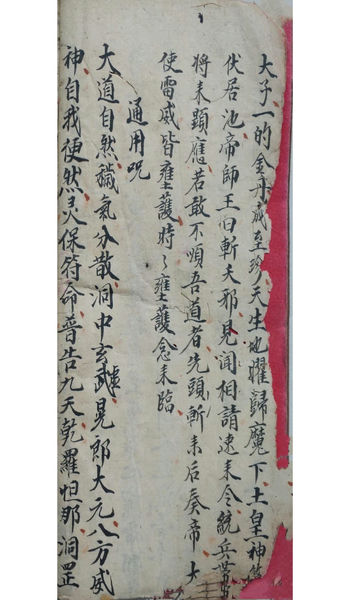 大子一的金丹成至珍天生地耀歸魔下土皇神
伏居池帝師王曰斬夭邪見闻相請速来令統兵
將来顕應若敢不順吾道者先頭斬来后奏帝大
使雷威皆壅護時々壅護念来臨
通用咒
大道自然穢氣分散洞中玄武晃郎大元八方威
神自我使然灵保符命普告九天乾羅怛那洞罡